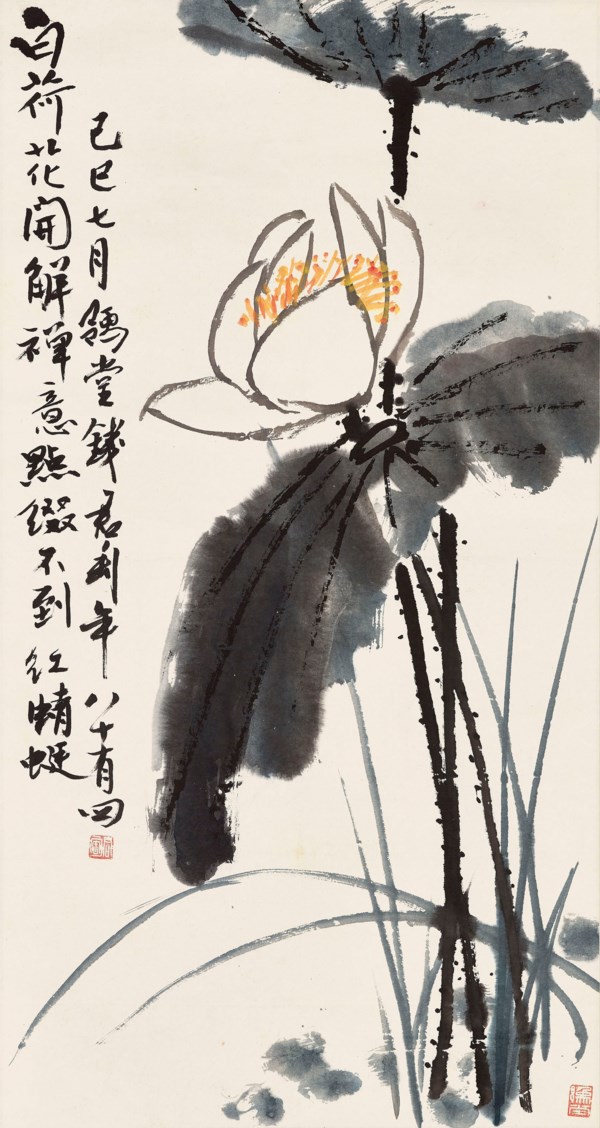 白荷花開解禪意點綴不到紅蜻蜓
己巳七月鶴堂錢君匋年八十有四